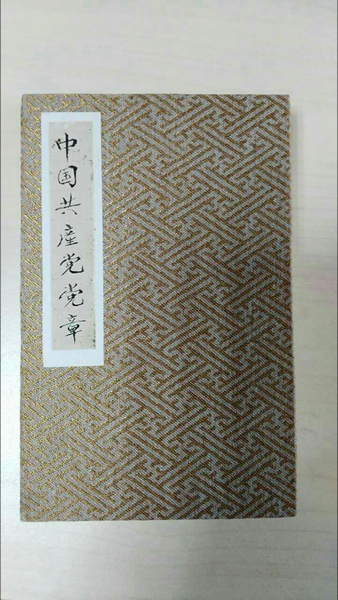 中国共產党党章